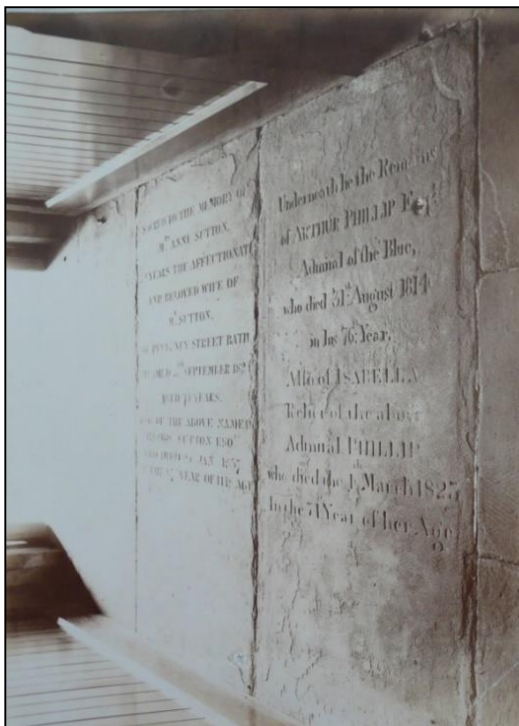 SACRED TO THE MEMORY OF
Mrs. ANNE SUTTON,
YEARS THE AFFECTIONATE
AND BELOVED WIFE OF
Wm. SUTTON,
STREET BATH
SEPTEMBER
AGED YEARS.
OF THE ABOVE NAMED
SUTTON ESQr.
JAN
YEAR OF AGE
Underneath lie the Remains
of ARTHUR PHILLIP Esqr.
Admiral of the Blue,
who died 31st. August 1814
in his 76. Year.
Also of ISABELLA
Relict of the above
Admiral PHILLIP
who died the 4th March 1823
In the 71 Year of her Age